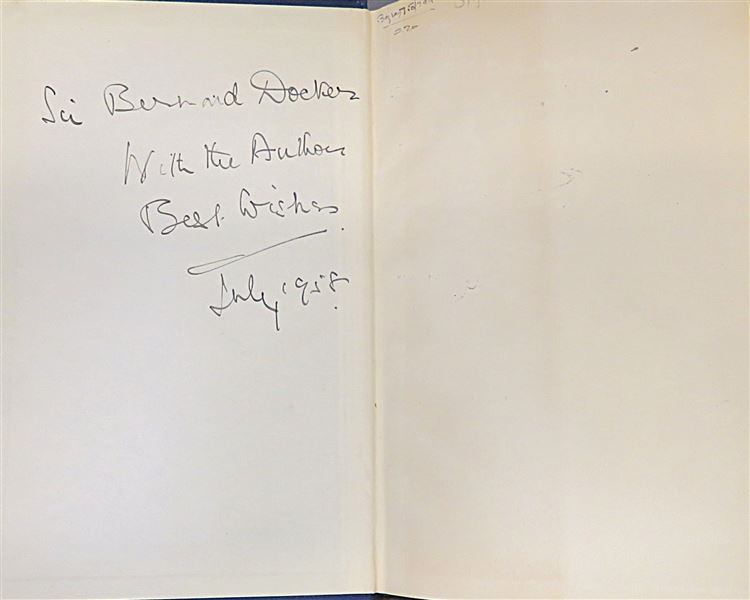 Sir Bernard Docker
With the Author
Best Wishes.
July 1958.